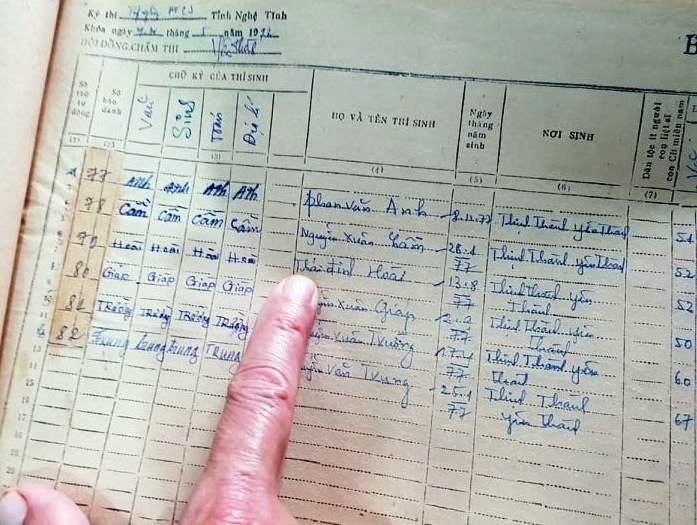 Kỳ thi Tỉnh Nghệ Tĩnh
Khóa ngày tháng 5 năm 19
HỘI ĐỒNG CHẤM THI
B
Số thứ tự động
Số báo danh
CHỮ KÝ CỦA THÍ SINH
Văn
Sinh
Toán
Địa lí
HỌ VÀ TÊN THÍ SINH
Ngày tháng năm sinh
NƠI SINH
Dân tộc ít người con liệt sĩ con CB miền nam
(1) (2) (3) (4) (5) (6) (7)
77 Anh Anh Anh Anh Phan Văn Anh 77 Thịnh Thành Yên Thành 54
78 Cầm Cầm Cầm Cầm Nguyễn Xuân Cầm 26.1 77 Thịnh Thành Yên Thành 52
79 Hoài Hoài Hoài Hoài Đình Hoài 13.8 77 Thịnh Thành Yên Thành 52
80 Giáp Giáp Giáp Giáp Xuân Giáp 77 Thịnh Thành Yên Thành 50
81 Trường Trường Trường Trường Xuân Trường 77 Thịnh Thành Yên Thành 60
82 Trung Trung Trung Trung Văn Trung 25.1 77 Thịnh Thành Yên Thành 67